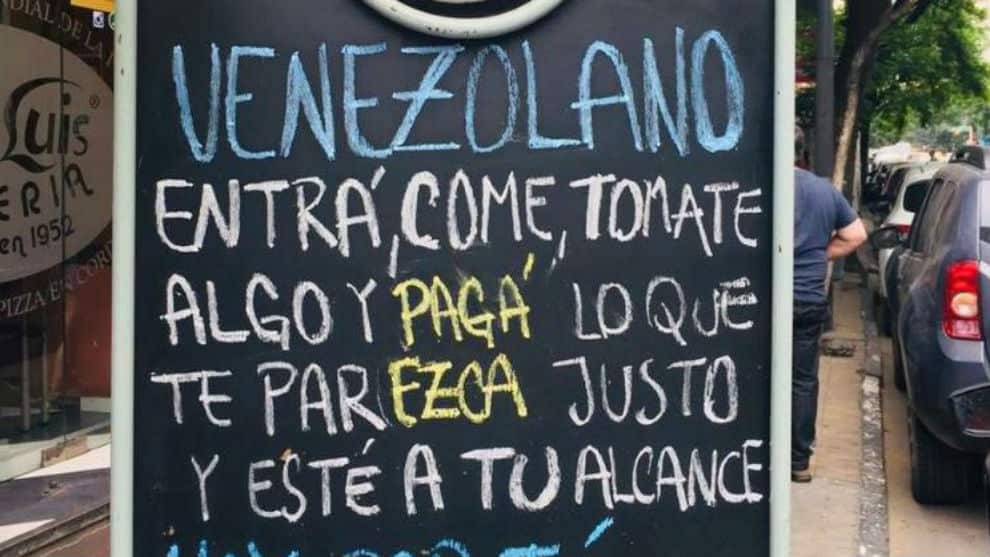 VENEZOLANO
ENTRÁ, COME, TOMATE
ALGO Y PAGÁ LO QUE
TE PAREZCA JUSTO
Y ESTÉ A TU ALCANCE
Luis
ERIA
en 1952
PIZZA EN